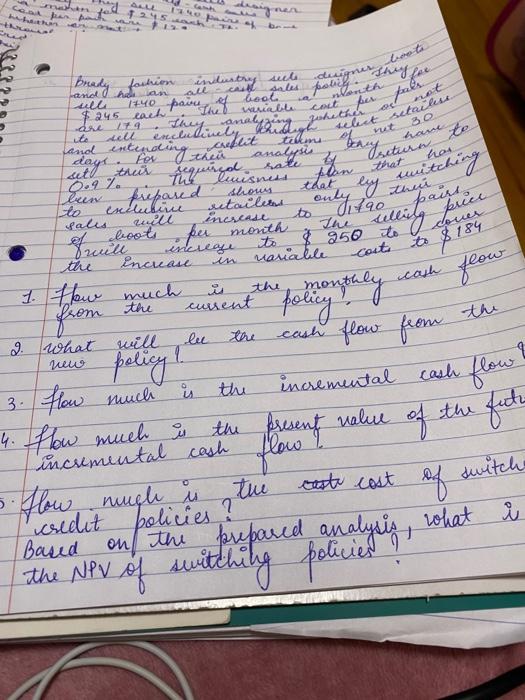 designer
$245 each
1740 pairs of
Brady fashion industry sells designer boots
and has an all-cash sales policy. They
sells 1740 pairs of boots a month for
$245 each. The variable cost per pair
are 179. They analyzing whether or not
to sell exclusively through select retailers
and extending credit terms of net 30
days. For their analysis, they have to
set their required rate of return to
0.9%. The business plan that has
been prepared shows that by switching
to exclusive retailers only their
sales will increase to 1790 pairs
of boots per month. The selling price
will increase to $250 to cover
the increase in variable costs to $184
1. How much is the monthly cash flow
from the current policy?
2. What will be the cash flow from the
new policy?
3. How much is the incremental cash flow?
4. How much is the present value of the futu
incremental cash flow?
5. How much is the cost of switch
credit policies?
Based on the prepared analysis, what is
the NPV of switching policies?